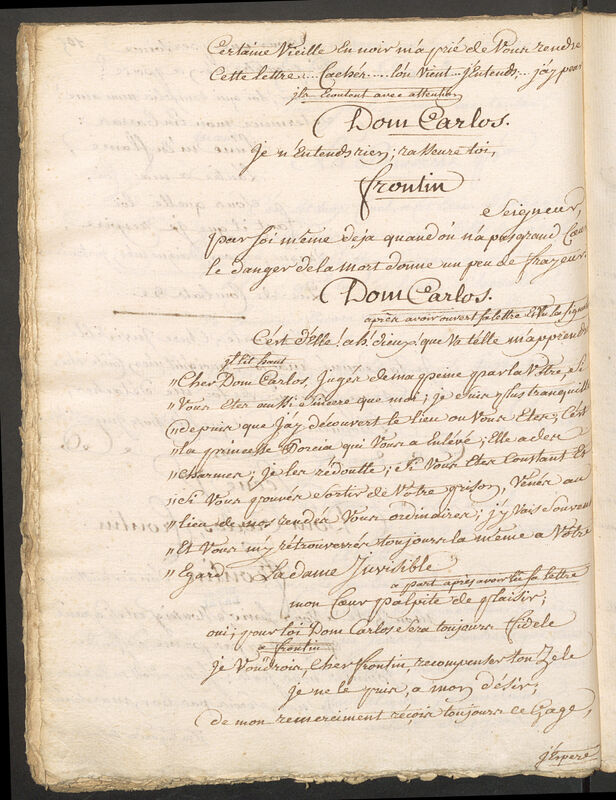 Certaine Vieille En noir m'a prié de Vous rendre
Cette lettre.... Cachés.... l'on Vient... jEntends... j'ay peur
jls Ecoutent avec attention
Dom Carlos.
Je n'Entends rien; raßeure toi,
frontin
Seigneur,
pour soi même deja quand on n'a pas grand Coeur
le danger de la mort donne un peu de frayeur.
Dom Carlos.
après avoir ouvert la lettre et Vu la signat
C'est d'Elle! ah! dieux! que Va t'elle m'apprendre
jl lit haut
"Cher Dom Carlos, Jugés de ma peine par la Vôtre, si
"Vous Etes außi sincere que moi; je suis plus tranquille
"depuis que j'ay découvert le lieu ou Vous Etes; C'est
"la princesse Porcia qui Vous a Enlevé; Elle a des
"charmes; je les redoutte; si Vous Etes Constant Et
"si Vous pouvés sortir de Votre prison, Venés au
"lieu de nos rendés Vous ordinaires; j'y Vais souvent
"Et Vous m'y retrouverrés toujours la même a Vôtre
"Egard. La dame Invisible
a part après avoir lû la lettre
mon Coeur palpite de plaisir;
oui; pour toi Dom Carlos sera toujours fidele
a frontin
Je Voudrois, Cher frontin, recompenser ton Zele
Je ne le puis, a mon désir;
de mon remerciment reçois toujours ce Gage,
j'Espere